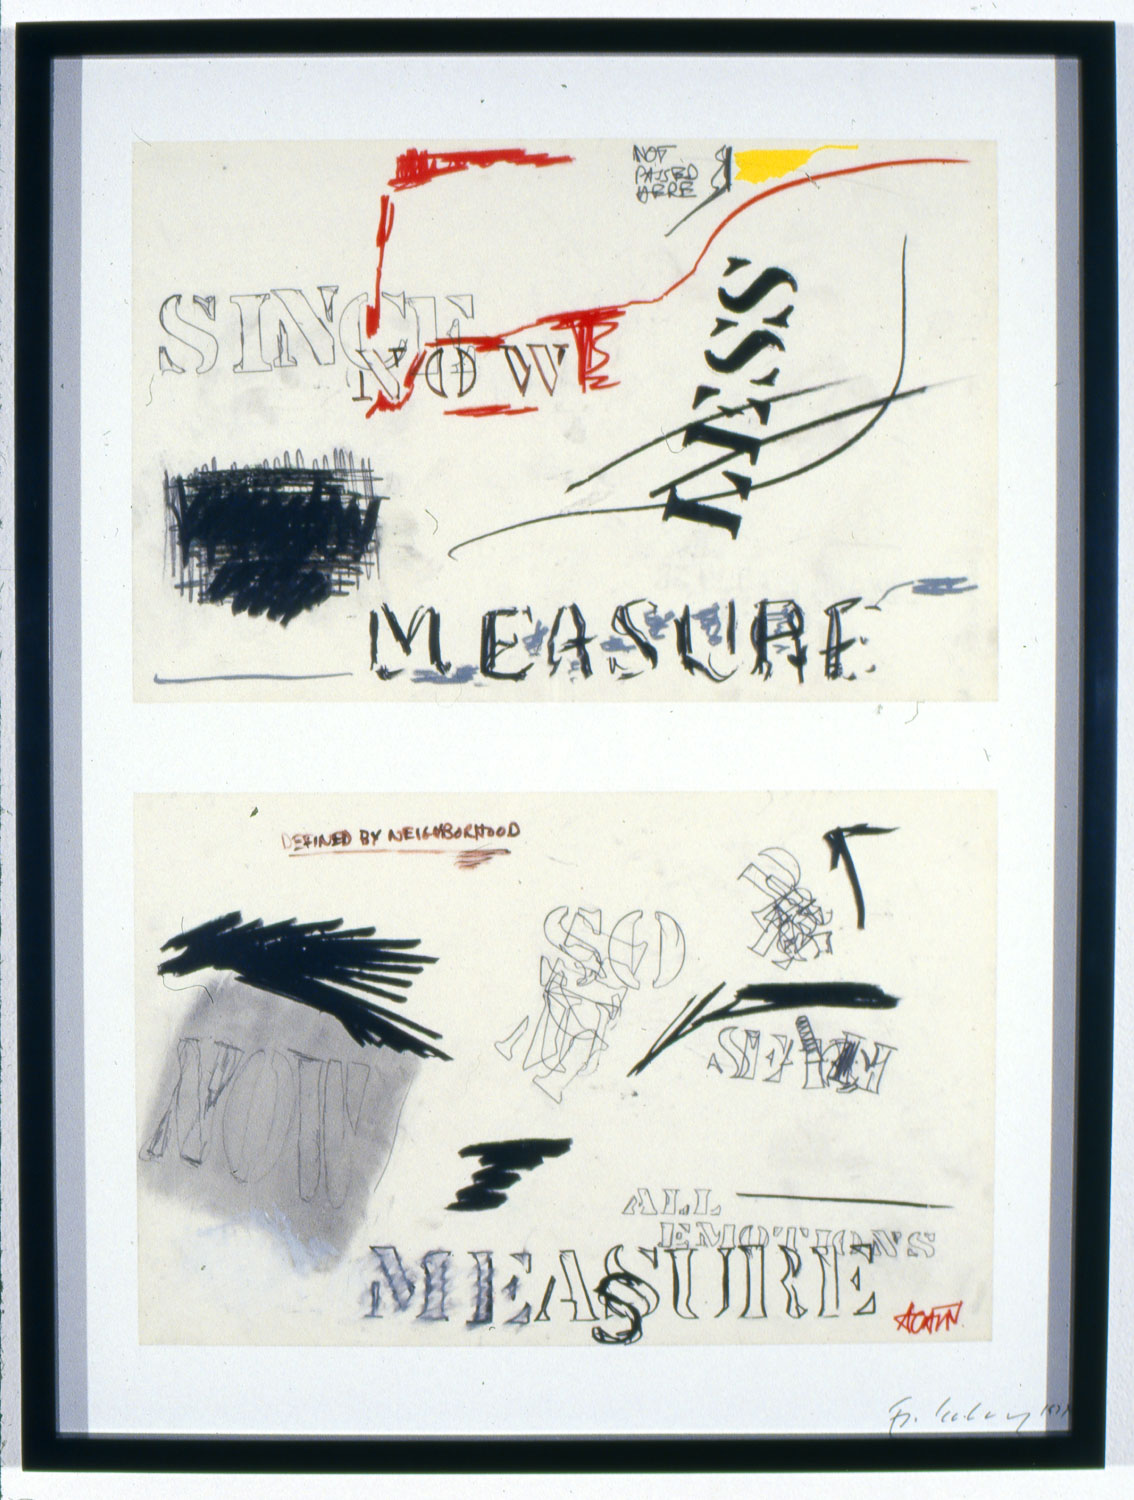 NOT
PASSED
HERE
SINCE
NOW
MISS
MEASURE
DEFINED BY NEIGHBORHOOD
SO
NOW
ALL
EMOTIONS
MEASURE
S
AGAIN